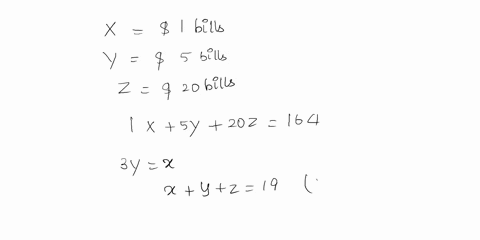 X = $ 1 bills
Y = $ 5 bills
Z = $ 20 bills
1 X + 5Y + 20Z = 164
3Y = x
x + y + z = 19 (